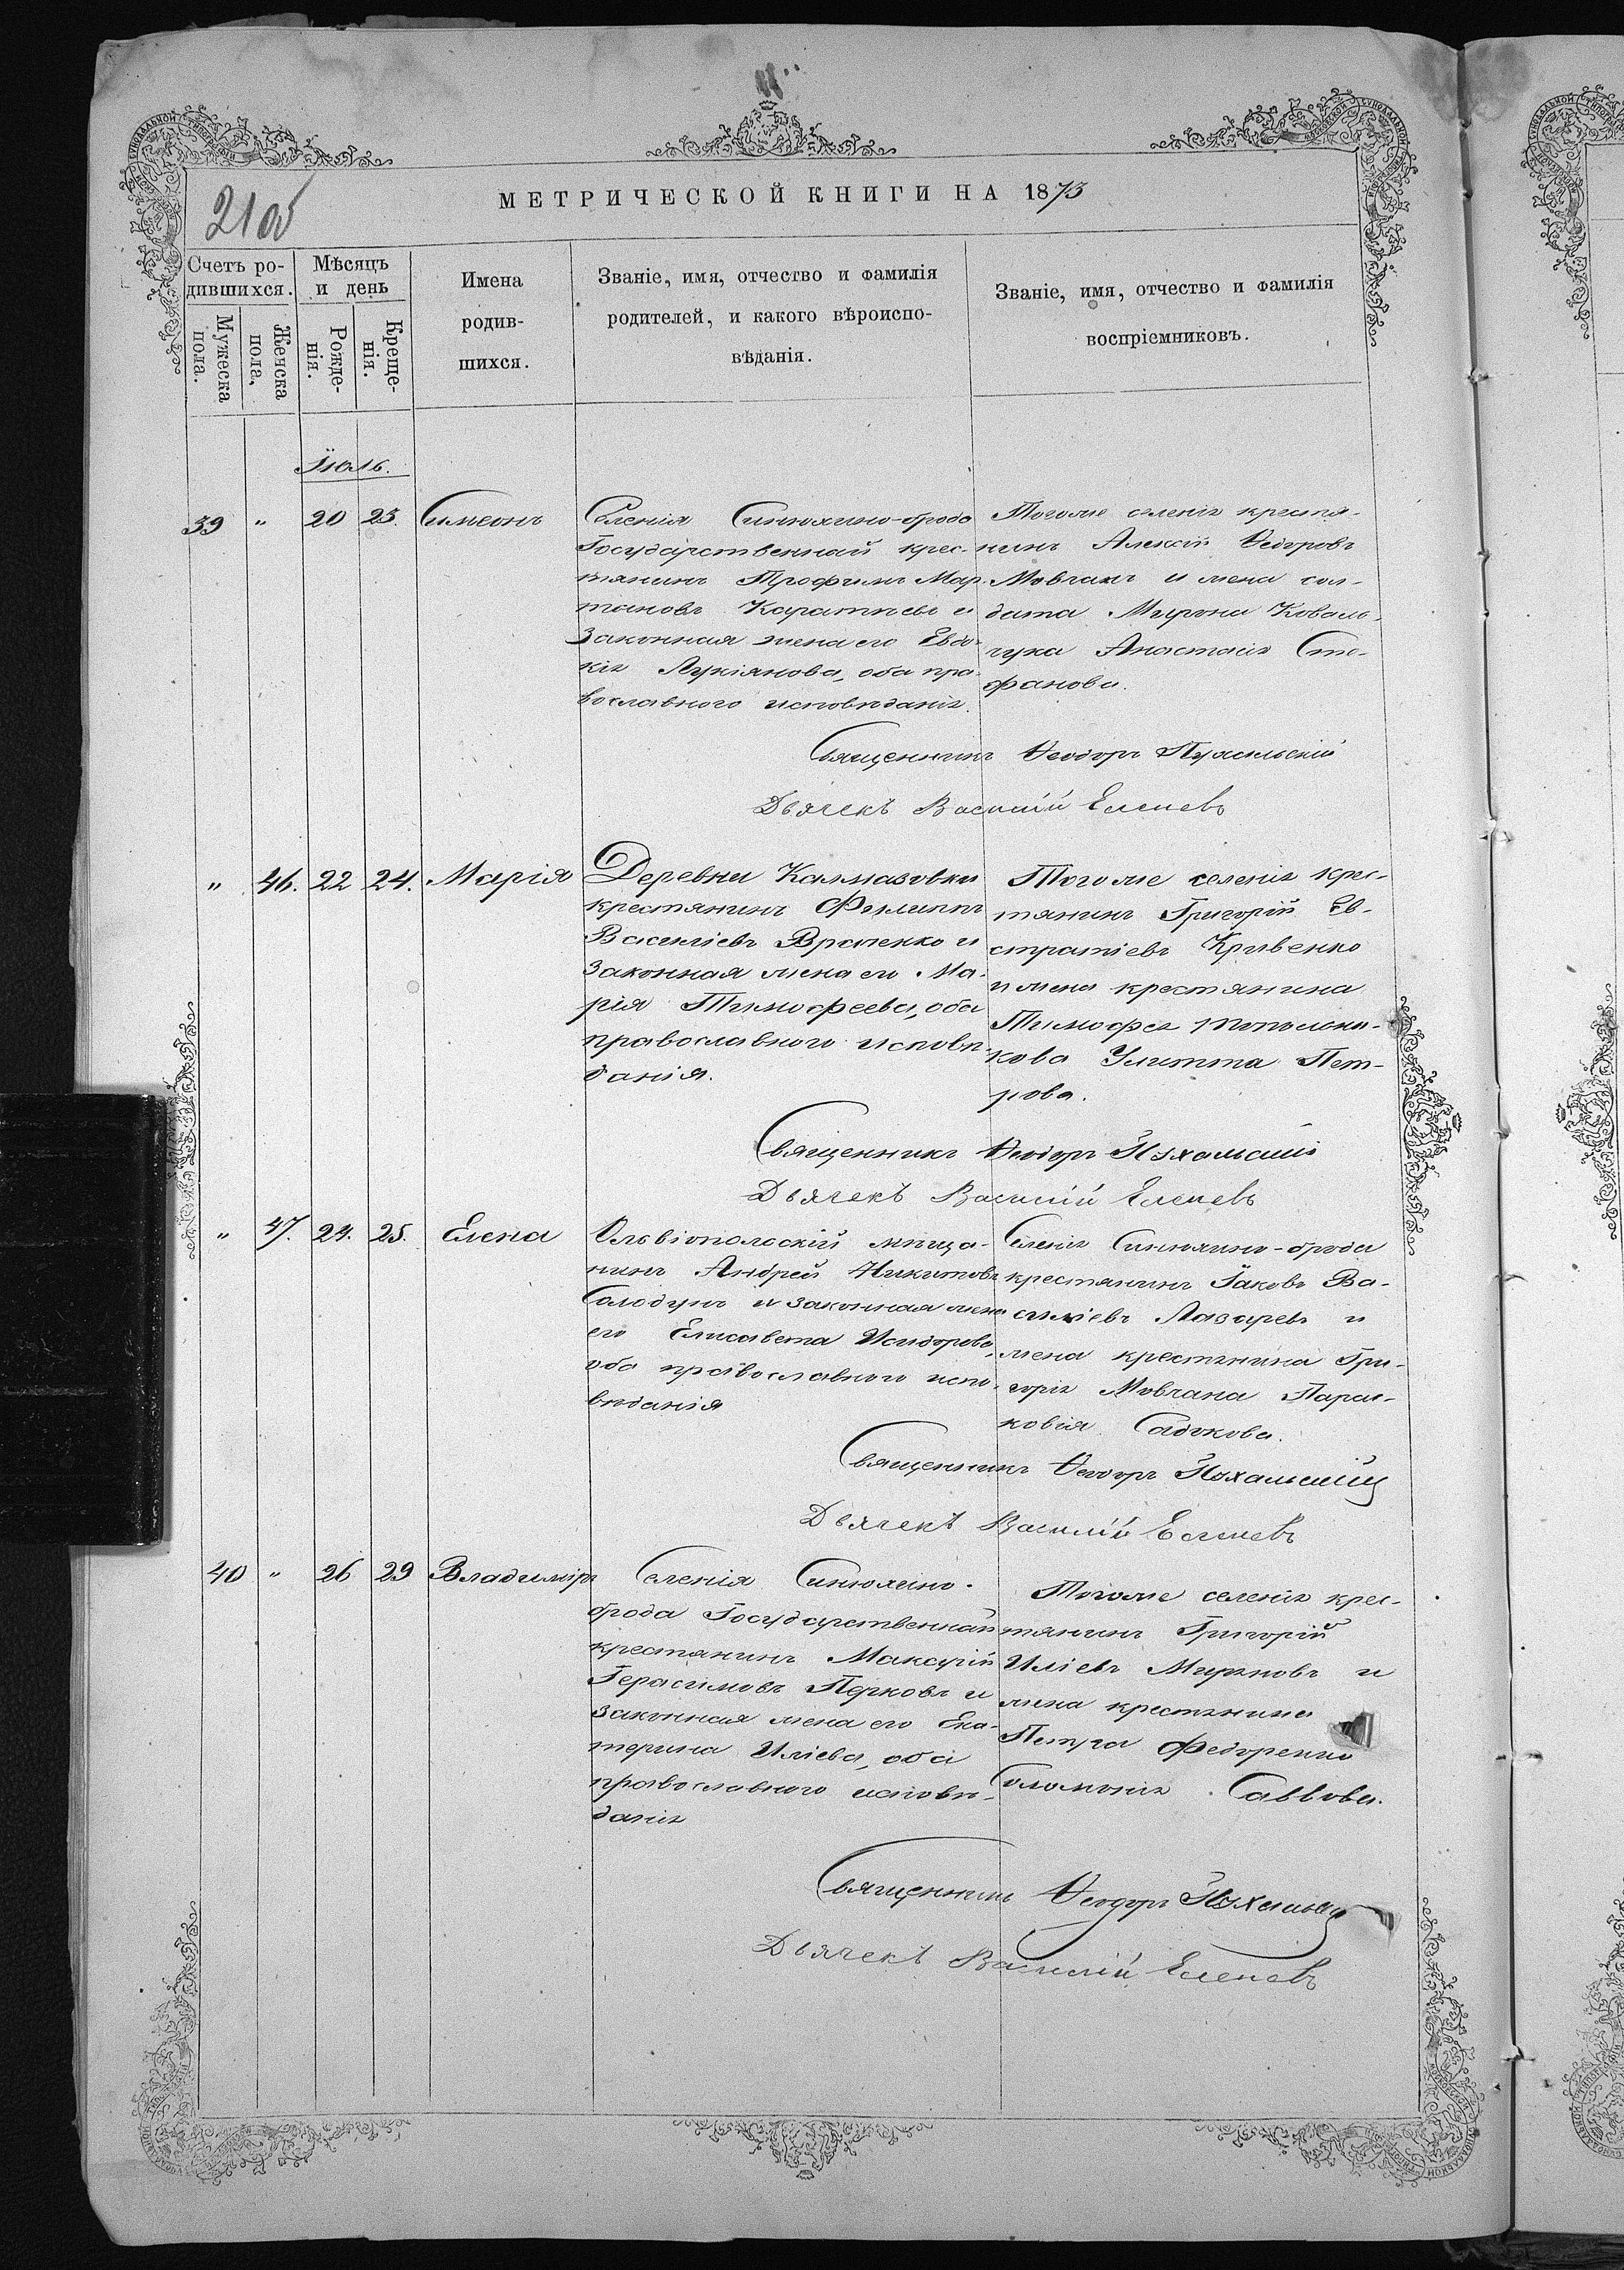 МЕТРИЧЕСКОЙ КНИГИ НА 1873
21об
Счетъ ро-
дившихся.
Мѣсяцъ
и день
Имена
родив-
шихся.
Званіе, имя, отчество и фамилія
родителей, и какого вѣроиспо-
вѣданія.
Званіе, имя, отчество и фамилія
воспріемниковъ.
Мужеска
пола.
Женска
пола,
Рожде-
нія.
Креще-
нія.
Іюль.
39 " 20 23. Симеонъ
Селенія Синюхино-брода
Государственный крес-
тянинъ Трофимъ Мар-
тиновъ и
Законная жена его Евдо-
кія Лукіянова, оба пра-
вославного исповѣданія.
Тогоже селенія крестя-
нинъ Алексій Ѳеодоровъ
Мовчанъ и жена сол-
дата Мирона Коваль-
чука Анастасія Сте-
фанова.
Священникъ Ѳеодоръ Пухальскій
Дьячекъ Василій Еленевъ
" 46. 22 24. Марія
Деревни Калмазовки
крестянинъ Филиппъ
Василіевъ и
Законная жена его Ма-
рія Тимофеева, оба
православного исповѣ-
данія.
Тогоже селенія крес-
тянинъ Григорій Ев-
стратіевъ Кривенко
и жена крестянина
Тимофея Топольни-
кова Улитта Пет-
рова.
Священникъ Ѳеодоръ Пухальскій
Дьячекъ Василій Еленевъ
" 47. 24. 25. Елена
Ольвіопольскій мѣща-
нинъ Андрей Никитовъ
Солодунъ и законная жена
его Елисавета Исидорова,
оба православного испо-
вѣданія
Селенія Синюхино-брода
крестянинъ Іаковъ Ва-
силіевъ Лазаревъ и
жена крестянина Гри-
горія Мовчана Парас-
ковія Садокова.
Священникъ Ѳеодоръ Пухальскій
Дьячекъ Василій Еленевъ
40 " 26 29 Владиміръ
Селенія Синюхино-
брода Государственный
крестянинъ Макарій
Герасимовъ Перковъ и
Законная жена его Ека-
терина Иліева, оба
православного исповѣ-
данія
Тогоже селенія крес-
тянинъ Григорій
Иліевъ и
жена крестянина
Петра Федоренко
Соломонія Саввова.
Священникъ Ѳеодоръ Пухальскій
Дьячекъ Василій Еленевъ